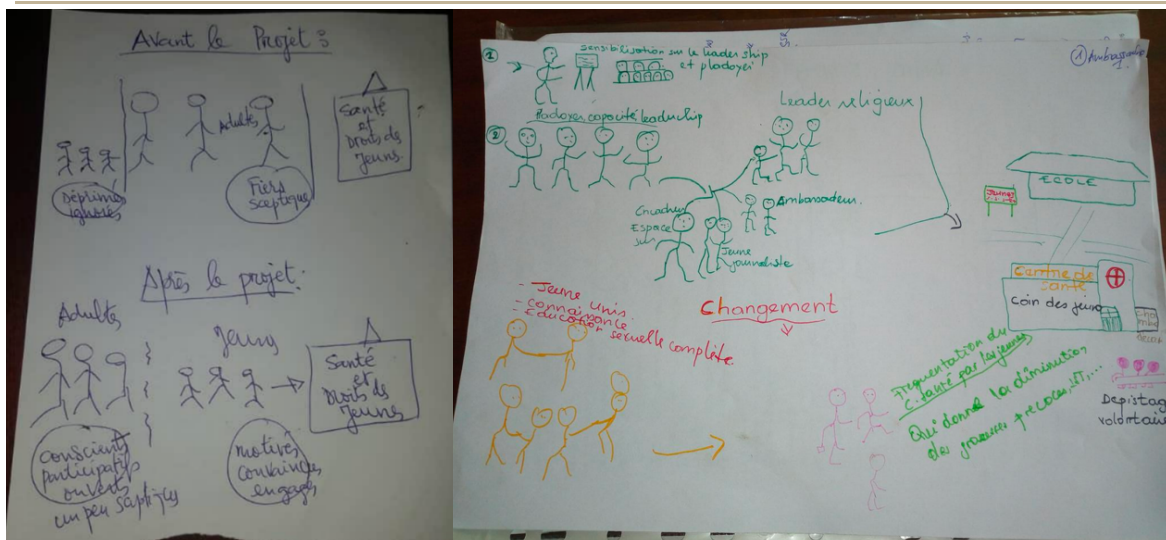 Avant le Projet :
Adultes
Santé
et
Droits des
Jeunes.
Déprimés
ignorés
Fiers
sceptique
Après le projet:
Adultes
Jeuns
Santé
et
Droits de
Jeunes
conscients
participatifs
ouverts
un peu séptiqes
motivés
convaincus
engagés
1
sensibilisation sur le leader ship
et pladoyer
2
Pladoyer capacité leadership
Leader religieux
Encadreur
Espace
Ambassadeur.
Jeune
journaliste
- Jeune unis
- connaissance
- Education sexuelle complète
Changement
1 Ambassador
ECOLE
Jeunes
Centre de
santé
coin des jeunes
Frequentation du
C. santé par les jeunes
Qui donne la diminution
des grossesses precoces, IST, ...
Depistage
volontaire